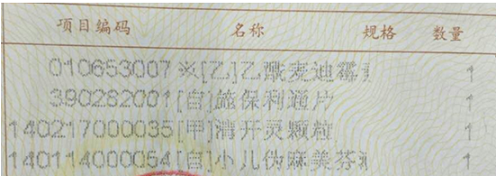 项目编码 名称 规格 数量
010653007 ※[乙]乙酰麦迪霉 1
390282001 [自]施保利通片 1
140217000035 [甲]清开灵颗粒 1
140114000054 [自]小儿伪麻美芬 1